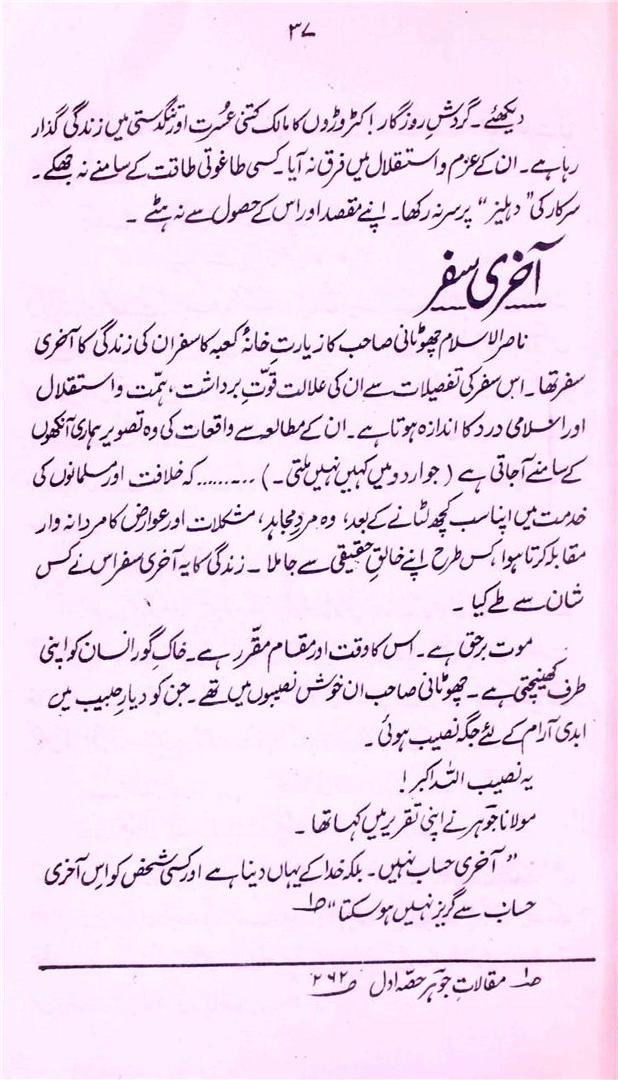 ۳۷
دیکھئے۔ گردشِ روزگار! کڑوڑوں کا مالک کتنی عُسرت اور تنگدستی میں زندگی گذار
رہا ہے۔ ان کے عزم و استقلال میں فرق نہ آیا۔ کسی طاغوتی طاقت کے سامنے نہ جھکے۔
سرکار کی "دہلیز" پر سر نہ رکھا۔ اپنے مقصد اور اس کے حصول سے نہ ہٹے۔
آخری سفر
ناصر الاسلام چھوٹانی صاحب کا زیارتِ خانۂ کعبہ کا سفر ان کی زندگی کا آخری
سفر تھا۔ اس سفر کی تفصیلات سے ان کی علالت قوّتِ برداشت، ہمّت و استقلال
اور اسلامی درد کا اندازہ ہوتا ہے۔ ان کے مطالعہ سے واقعات کی وہ تصویر ہماری آنکھوں
کے سامنے آجاتی ہے (جو اردو میں کہیں نہیں ملتی۔) ......... کہ خلافت اور مسلمانوں کی
خدمت میں اپنا سب کچھ لٹانے کے بعد، وہ مردِ مجاہد، مشکلات اور عوارض کا مردانہ وار
مقابلہ کرتا ہوا، کس طرح اپنے خالقِ حقیقی سے جاملا۔ زندگی کا یہ آخری سفر اس نے کس
شان سے طے کیا۔
موت برحق ہے۔ اس کا وقت اور مقام مقرّر ہے۔ خاکِ گور انسان کو اپنی
طرف کھینچتی ہے۔ چھوٹانی صاحب ان خوش نصیبوں میں تھے۔ جن کو دیارِ حبیب میں
ابدی آرام کے لئے جگہ نصیب ہوئی۔
یہ نصیب اللہ اکبر!
مولانا جوہر نے اپنی تقریر میں کہا تھا۔
"آخری حساب نہیں۔ بلکہ خدا کے یہاں دینا ہے اور کسی شخص کو اس آخری
حساب سے گریز نہیں ہو سکتا" ص۱
ص۱ مقالاتِ جوہر حصّہ اول ص ۲۶۲